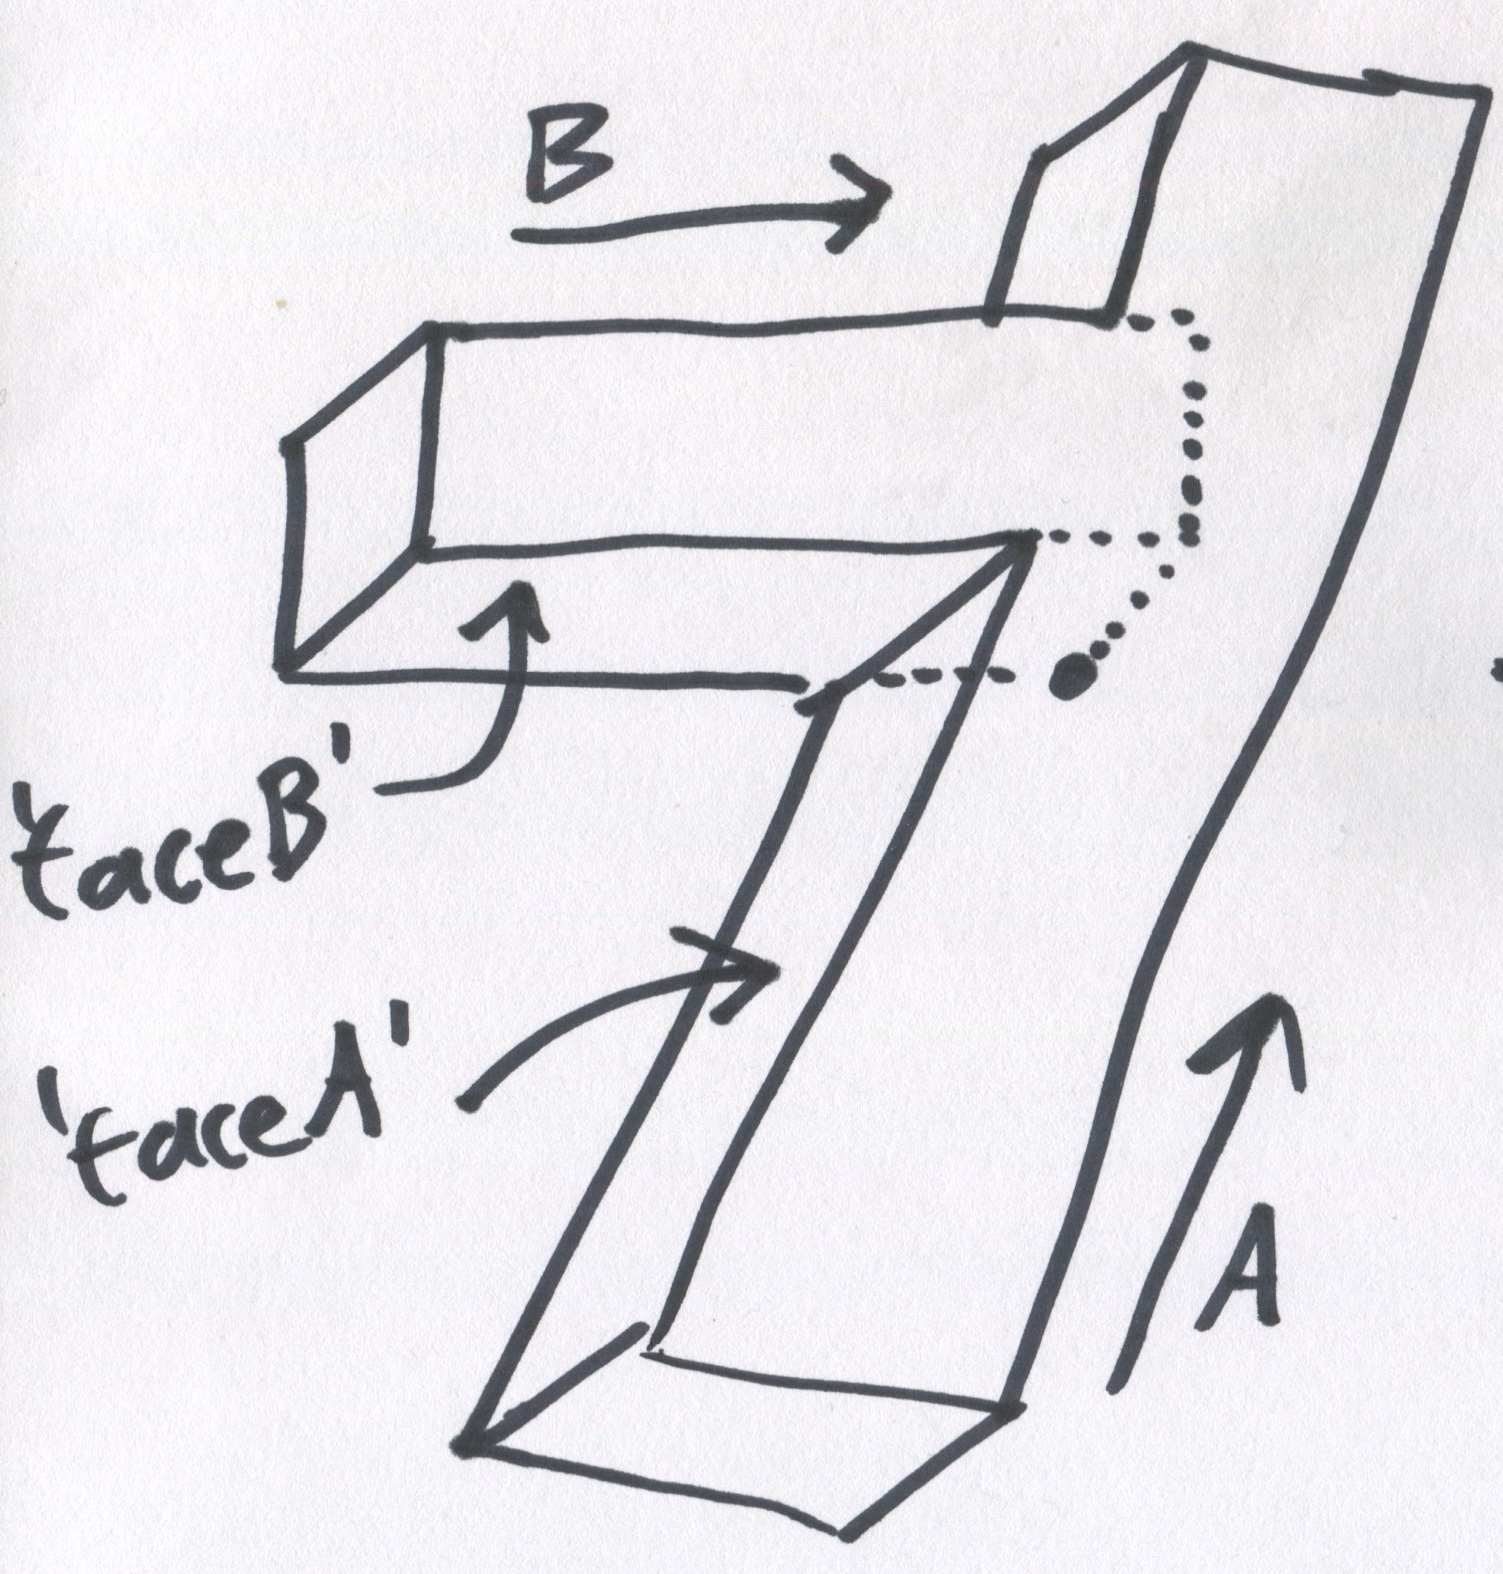 B
'faceB'
'faceA'
A